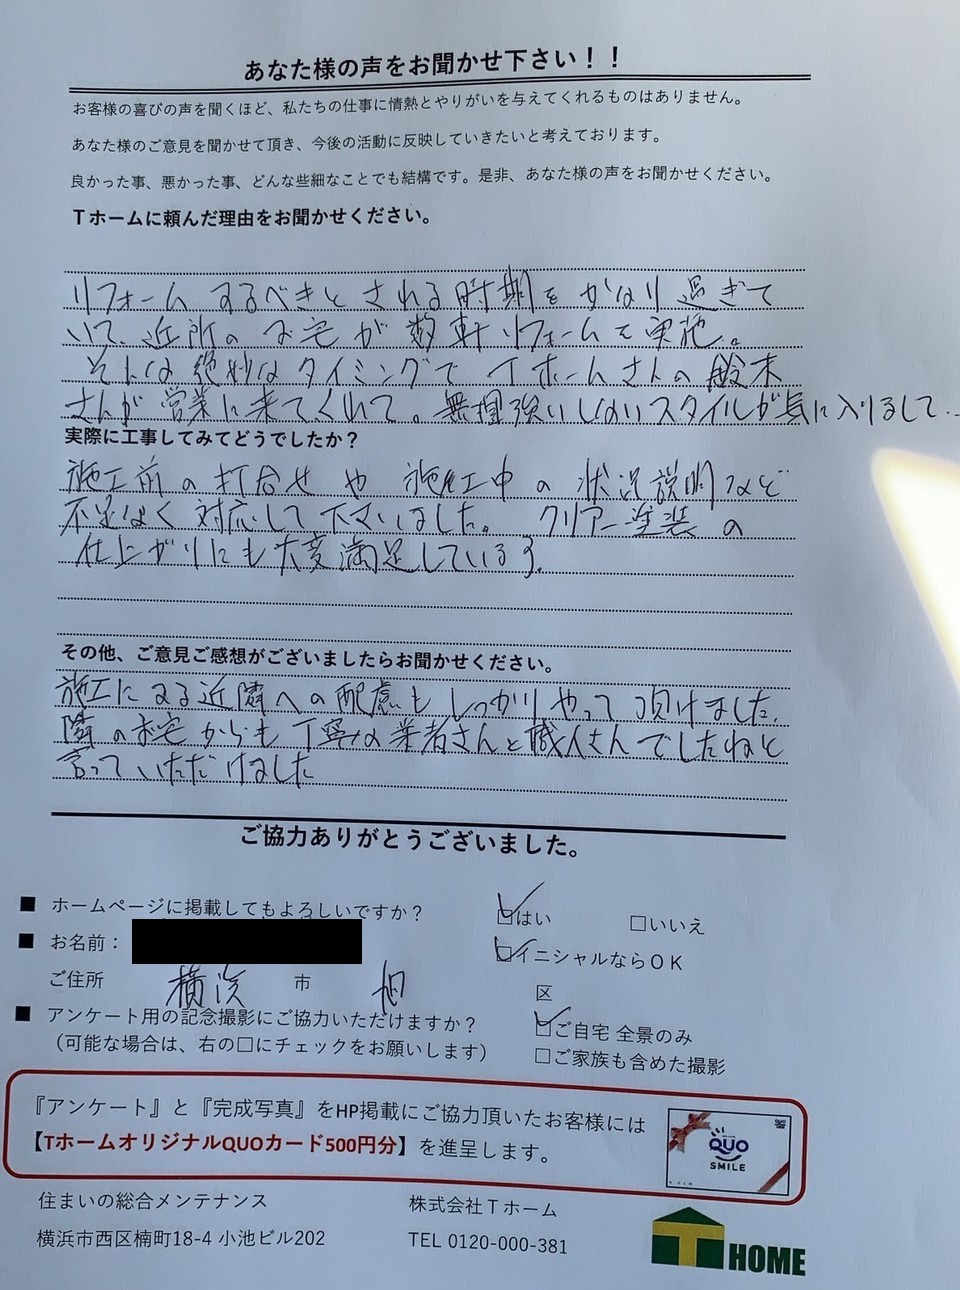 あなた様の声をお聞かせ下さい！！
お客様の喜びの声を聞くほど、私たちの仕事に情熱とやりがいを与えてくれるものはありません。
あなた様のご意見を聞かせて頂き、今後の活動に反映していきたいと考えております。
良かった事、悪かった事、どんな些細なことでも結構です。是非、あなた様の声をお聞かせください。
Ｔホームに頼んだ理由をお聞かせください。
リフォームするべきとされる時期をかなり過ぎて
いて、近所のお宅が数軒リフォームを実施。
そんな絶妙なタイミングでTホームさんの鈴木
さんが営業に来てくれて。無理強いしないスタイルが気に入りまして…
実際に工事してみてどうでしたか？
施工前の打合せや施工中の状況説明など
不足なく対応して下さいました。クリアー塗装の
仕上がりにも大変満足しています。
その他、ご意見ご感想がございましたらお聞かせください。
施工による近隣への配慮もしっかりやって頂けました。
隣のお宅からも丁寧な業者さんと職人さんでしたねと
言っていただけました
ご協力ありがとうございました。
■ ホームページに掲載してもよろしいですか？ ☑はい □いいえ
■ お名前： ☑イニシャルならＯＫ
ご住所 横浜 市 旭 区
■ アンケート用の記念撮影にご協力いただけますか？ ☑ご自宅 全景のみ
（可能な場合は、右の□にチェックをお願いします） □ご家族も含めた撮影
『アンケート』と『完成写真』をHP掲載にご協力頂いたお客様には
【TホームオリジナルQUOカード500円分】を進呈します。
QUO
SMILE
住まいの総合メンテナンス 株式会社Ｔホーム
横浜市西区楠町18-4 小池ビル202 TEL 0120-000-381
T HOME